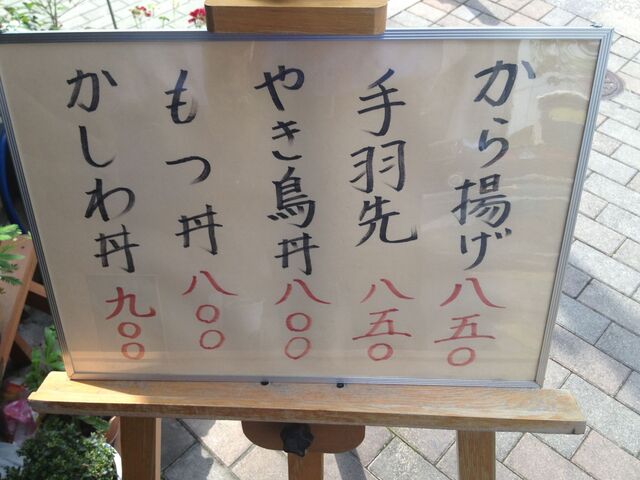 から揚げ 八五〇
手羽先 八五〇
やき鳥丼 八〇〇
もつ丼 八〇〇
かしわ丼 九〇〇